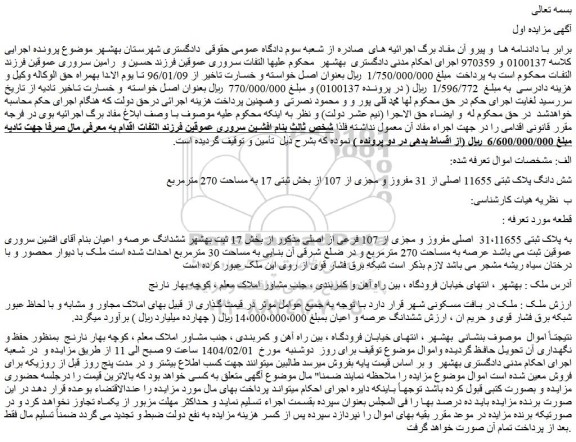 بسمه تعالی
آگهی مزایده اول
برابر با دادنامه ها و پیرو آن مفاد برگ اجرائیه های صادره از شعبه سوم دادگاه عمومی حقوقی دادگستری شهرستان بهشهر موضوع پرونده اجرایی
کلاسه 0100137 و 970359 اجرای احکام مدنی دادگستری بهشهر محکوم علیها التفات سروری عموقین فرزند حسین و رامین سروری عموقین فرزند
التفات محکوم است به پرداخت مبلغ 1/750/000/000 ریال بعنوان اصل خواسته و خسارت تاخیر از 96/01/09 تا یوم الادا بهمراه حق الوکاله وکیل و
هزینه دادرسی به مبلغ 1/596/772 ریال ( در پرونده 0100137) و مبلغ 770/000/000 ریال بعنوان اصل خواسته و خسارت تاخیر تادیه از تاریخ
سررسید لغایت اجرای حکم در حق محکوم لها محمد قلی پور و و محمود نصرتی وهمچنین پرداخت هزینه اجرائی درحق دولت که هنگام اجرای حکم محاسبه
خواهدشد در حق محکوم له و ایضاء حق الاجرا (نیم عشر دولت) و نظر به اینکه محکوم علیه موصوف با وصف ابلاغ مفاد برگ اجرائیه بوی در فرجه
مقرر قانونی اقدامی را در جهت اجراء مفاد آن معمول نداشته فلذا شخص ثالث بنام افشین سروری عموقین فرزند التفات اقدام به معرفی مال صرفا جهت تادیه
مبلغ 6/600/000/000 ریال (از اقساط بدهی در دو پرونده ) نموده که بشرح ذیل تأمین و توقیف گردیده است.
الف: مشخصات اموال تعرفه شده:
شش دانگ پلاک ثبتی 11655 اصلی از 31 مفروز و مجزی از 107 از بخش ثبتی 17 به مساحت 270 مترمربع
ب نظریه هیات کارشناسی:
قطعه مورد تعرفه :
به پلاک ثبتی 31،11655 اصلی مفروز و مجزی از 107 فرعی از اصلی مذکور از بخش 17 ثبت بهشهر ششدانگ عرصه و اعیان بنام آقای افشین سروری
عموقین ثبت می باشد عرصه به مساحت 270 مترمربع و در ضلع شرقی آن بنایی به مساحت 30 مترمربع احداث شده است ملک با دیوار محصور و با
درختان سیاه ریشه مشجر می باشد لازم بذکر است شبکه برق فشار قوی از روی این ملک عبور کرده است
آدرس ملک : بهشهر ، انتهای خیابان فرودگاه ، بین راه آهن و کمربندی ، جنب مشاور املاک معلم ، کوچه بهار نارنج
ارزش ملک : ملک در بافت مسکونی شهر قرار دارد با توجه به جمیع عوامل موثر در قیمت گذاری از قبیل بهای املاک مجاور و مشابه و با لحاظ عبور
شبکه برق فشار قوی و حریم آن ، ارزش ششدانگ عرصه و اعیان بمبلغ 14،000،000،000 ریال ( چهارده میلیارد ریال ) برآورد میگردد.
نتیجتاً اموال موصوف بنشانی بهشهر ، انتهای خیابان فرودگاه ، بین راه آهن و کمربندی ، جنب مشاور املاک معلم ، کوچه بهار نارنج بمنظور حفظ و
نگهداری آن تحویل حافظ گردیده واموال موضوع توقیف برای روز دوشنبه مورخ 1404/02/01 ساعت 9 صبح الی 11 از طریق مزایده و در شعبه
اجرای احکام مدنی دادگستری بهشهر و بر اساس قیمت پایه بفروش میرسد طالبین میتوانند جهت کسب اطلاع بیشتر و در مدت پنج روز قبل از روزیکه برای
فروش معین شده است اموال موضوع مزایده را ملاحظه نمایند ضمنا" مال موضوع آگهی متعلق به کسی خواهد بود که بالاترین قیمت را در جلسه حضوری
مزایده و بصورت کتبی قبول کرده باشد توجهاً باینکه دایره اجرای احکام میتواند پرداخت بهای مال مورد مزایده را عندالاقتضاء بوعده قرار دهد در این
صورت برنده مزایده باید ده درصد بها را فی المجلس بعنوان سپرده بقسمت اجراء تسلیم نماید و حداکثر مهلت مزبور از یکماه تجاوز نخواهد کرد و در
صورتیکه برنده مزایده در موعد مقرر بقیه بهای اموال را نپردازد سپرده پس از کسر هزینه مزایده به نفع دولت ضبط و تجدید می گردد ضمناً تسلیم مال فقط
.بعد از پرداخت تمام آن صورت خواهد گرفت